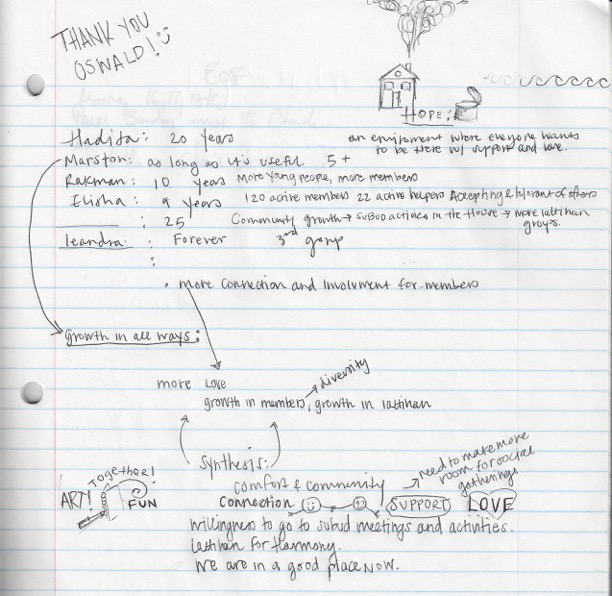 THANK YOU
OSWALD!
HOPE:
Hadifa: 20 years an enviroment where everyone wants
to be there w/ support and love.
Marston: as long as it's useful 5+
Rakman: 10 years More Young people, more members
Elisha: 9 years 120 active members 22 active helpers Accepting & tolerant of others
: 25 Community growth → subud activies in the House → more latihan
groups.
leandra: Forever 3rd group
:
• more connection and involvment for members
growth in all ways:
more love
growth in members, growth in latihan
→ diversity
synthesis:
comfort & community
→ need to make more
room for social
gatherings
Together!
ART!
FUN
Connection
SUPPORT
LOVE
willingness to go to subud meetings and activities.
Latihan for Harmony.
We are in a good place NOW.